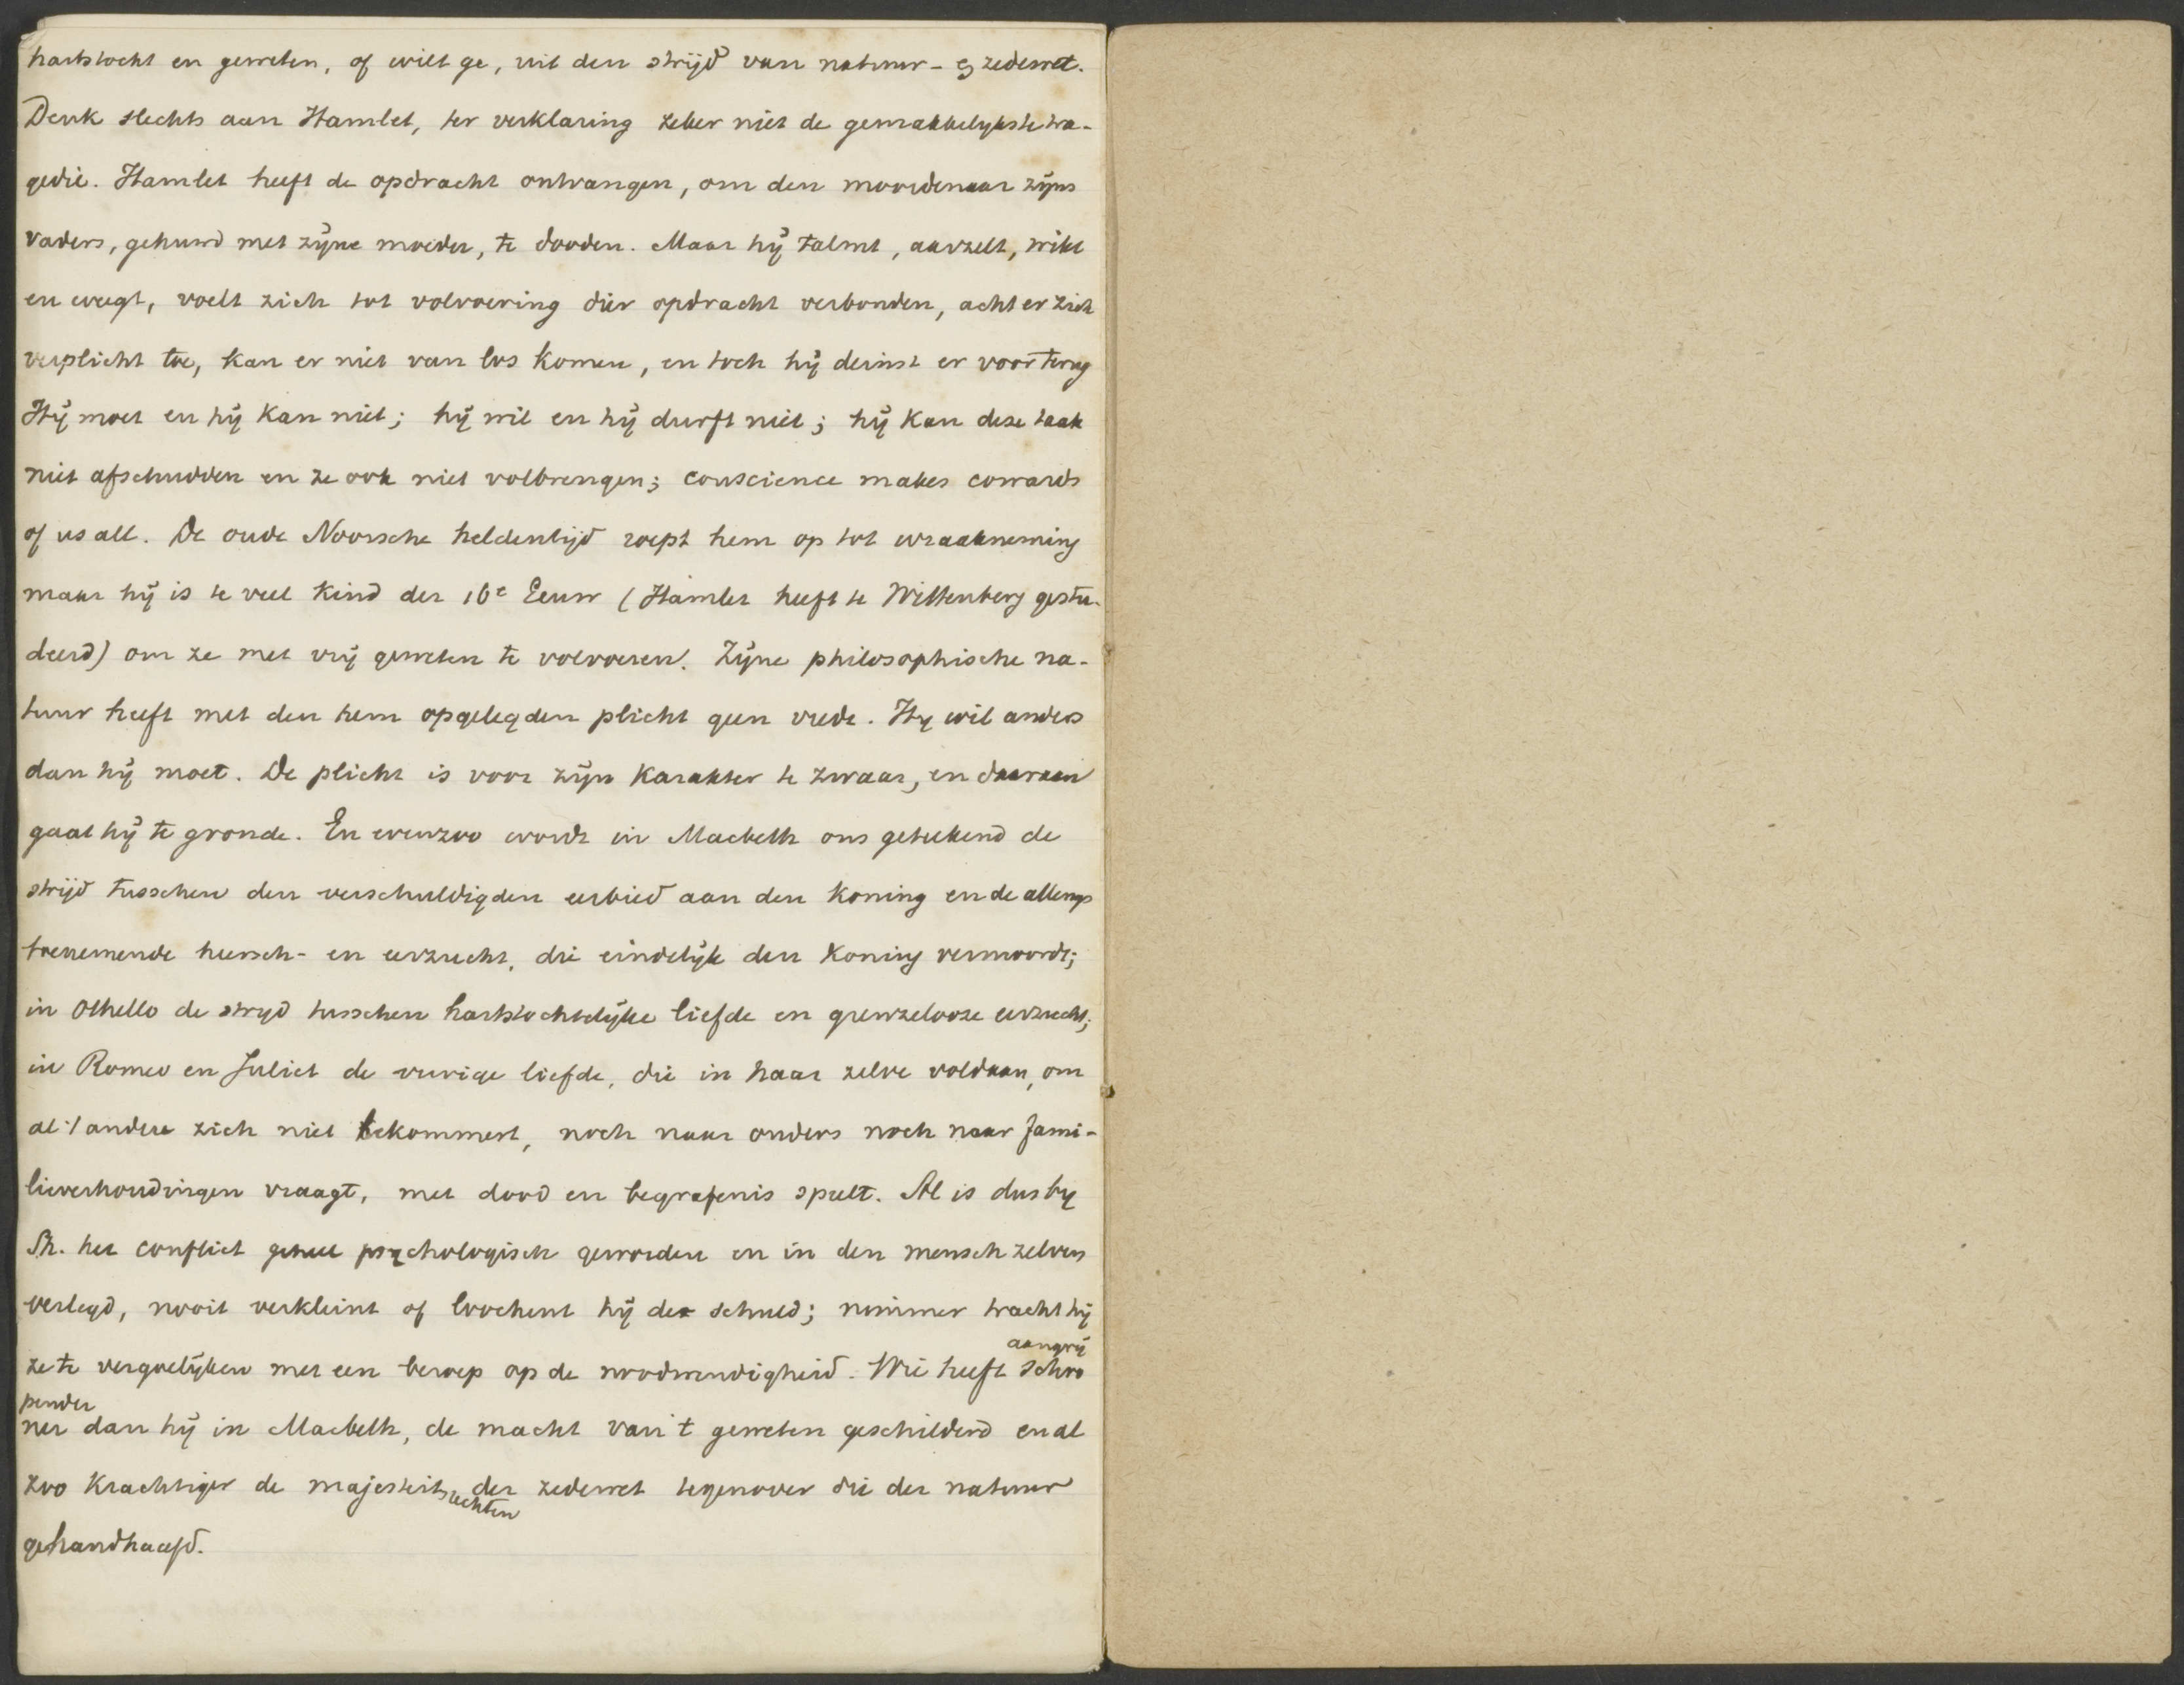 hartstocht en geweten, of wilt ge, uit den strijd van natuur- en zedewet.
Denk slechts aan Hamlet, ter verklaring zeker niet de gemakkelykste tra-
gedie. Hamlet heeft de opdracht ontvangen, om den moordenaar zijns
vaders, gehuwd met zijne moeder, te dooden. Maar hij talmt, aarzelt, wikt
en weegt, voelt zich tot volvoering dier opdracht verbonden, acht er zich
verplicht toe, kan er niet van los komen, en toch hij deinst er voor terug
Hij moet en hij kan niet; hij wil en hij durft niet; hij kan deze taak
niet afschudden en ze ook niet volbrengen; conscience makes cowards
of us all. De oude Noorsche heldentijd roept hem op tot wraakneming
maar hij is te veel kind der 16e Eeuw (Hamlet heeft te Wittenberg gestu-
deerd) om ze met vrij geweten te volvoeren. Zijne philosophische na-
tuur heeft met den hem opgelegden plicht geen vrede. Hy wil anders
dan hij moet. De plicht is voor zijn karakter te zwaar, en daaraan
gaat hij te gronde. En evenzoo wordt in Macbeth ons geteekend de
strijd tusschen den verschuldigden eerbied aan den Koning en de allengs
toenemende heersch- en eerzucht, die eindelijk den Koning vermoordt;
in Othello de stryd tusschen hartstochtelijke liefde en grenzelooze eerzucht;
in Romeo en Juliet de vurige liefde, die in haar zelve voldaan, om
al 't andere zich niet bekommert, noch naar ouders noch naar fami-
lieverhoudingen vraagt, met dood en begrafenis speelt. Al is dus by
Sh. het conflict geheel psychologisch geworden en in den mensch zelven
verlegd, nooit verkleint of loochent hij de schuld; nimmer tracht hij
ze te vergoelijken met een beroep op de noodwendigheid. Wie heeft schro
aangrij
pender
ner dan hij in Macbeth, de macht van 't geweten geschilderd en al
zoo krachtiger de majesteitsrechten der zedewet tegenover die der natuur
gehandhaafd.